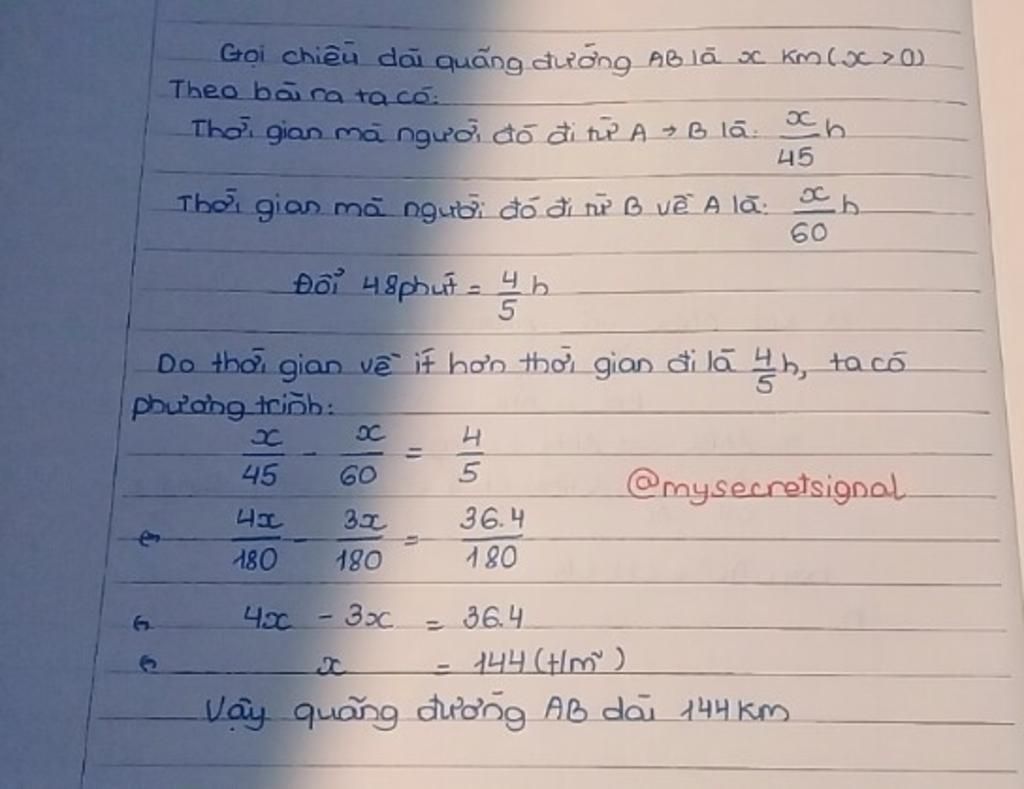 Gọi chiều dài quãng đường AB là x km (x > 0)
Theo bài ra ta có:
Thời gian mà người đó đi từ A → B là: x/45 h
Thời gian mà người đó đi từ B về A là: x/60 h
Đổi 48 phút = 4/5 h
Do thời gian về ít hơn thời gian đi là 4/5 h, ta có
phương trình:
x/45 - x/60 = 4/5
@mysecretsignal
⇔ 4x/180 - 3x/180 = 36.4/180
⇔ 4x - 3x = 36.4
⇔ x = 144 (t/m)
Vậy quãng đường AB dài 144 km